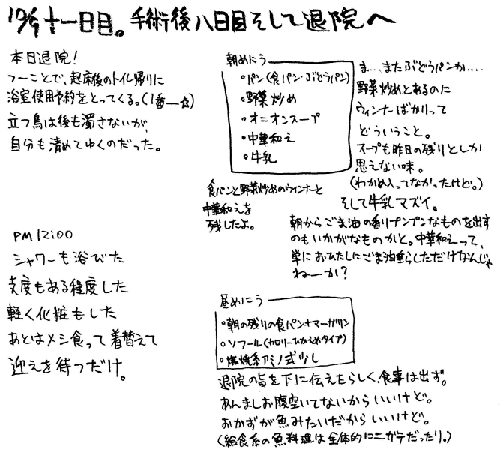 十一日目。手術後八日目そして退院へ
本日退院！
つーことで、起床後のトイレ帰りに
浴室使用予約をとってくる。（1番ー☆）
立つ鳥は後も濁さないが、
自分も清めてゆくのだった。
朝めにう
・パン（食パン・ぶどうパン）
・野菜炒め
・オニオンスープ
・中華和え
・牛乳
食パンと野菜炒めのウィンナーと
中華和えを
残したよ。
ま…またぶどうパンか…
野菜炒めとあるのに
ウィンナーばかりって
どういうこと。
スープも昨日の残りとしか
思えない味。
（わかめ入ってなかったけど。）
そして牛乳マズイ。
朝からごま油の香りプンプンなものを出す
のもいかがなものかと。中華和えって、
単におひたしにごま油垂らしただけなんじゃ
ねーか？
PM 12:00
シャワーも浴びた
支度もある程度した
軽く化粧もした
あとはメシ食って着替えて
迎えを待つだけ。
昼めにう
・朝の残りの食パン+マーガリン
・ソフール（カロリーひかえめタイプ）
・燃焼系アミノ式なし
退院の旨を下に伝えもらしく、食事は出ず。
あんましお腹空いてないからいいけど。
おかずが魚みたいだからいいけど。
（給食系の魚料理は全体的にニガテだったり。）